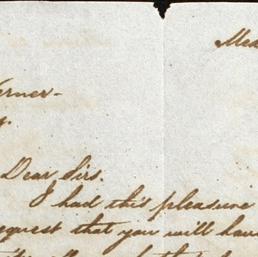 Mea
erner-
Dear Sirs.
I had this pleasure
equest that you will have